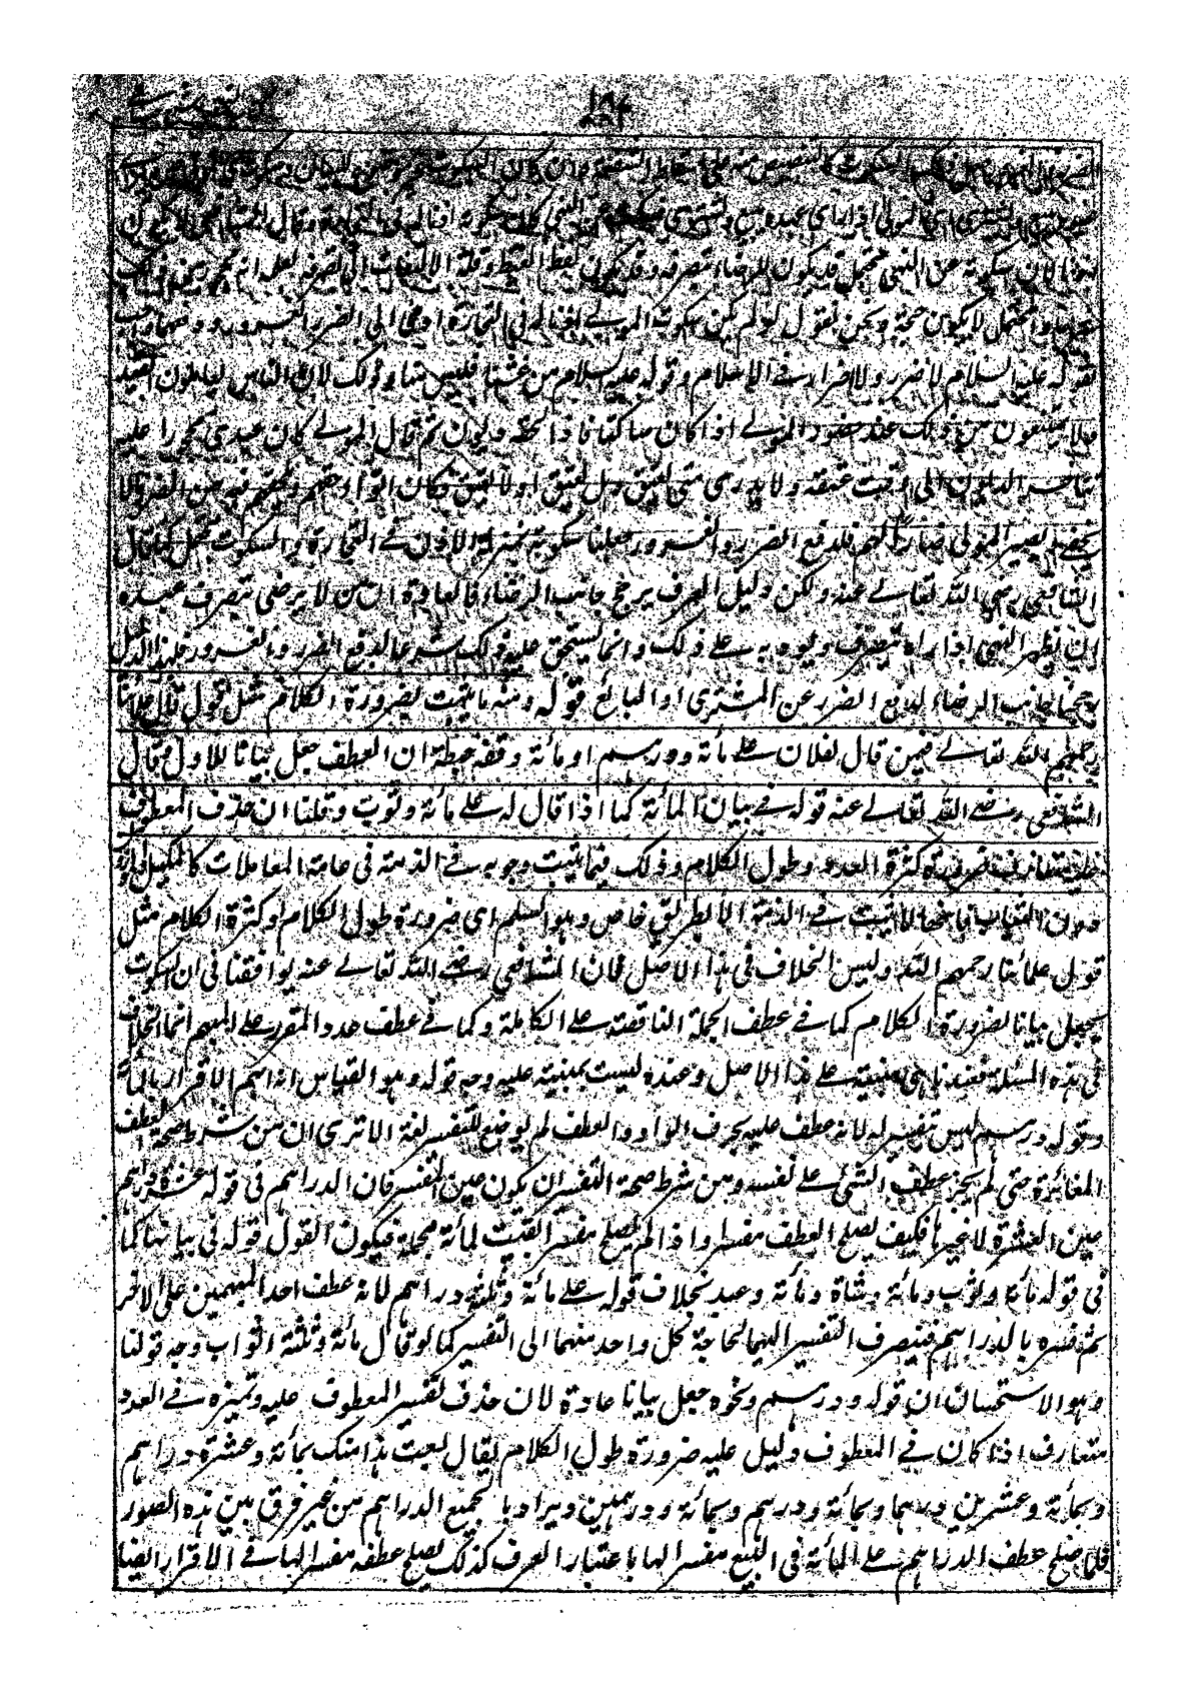 ١٨٤
لان سكوته عن النهي محتمل قد يكون للرضاء بتصرفه وقد يكون لفرط الغيظ وقلة الالتفات الى تصرفه لعلمه انه محجور
والمحتمل لا يكون حجة ونحن نقول لو لم يكن سكوت المولى اذنا له في التجارة افضى الى الضرر والغرور
لقوله عليه السلام لا ضرر ولا اضرار في الاسلام وقوله عليه السلام من غشنا فليس منا وذلك لان الناس يعاملون العبيد
ولا يمتنعون من ذلك عند حضور المولى اذا كان ساكتا فاذا لحقه ديون ثم قال المولى كان عبدي محجورا عليه
فتاخر الديون الى وقت عتقه ولا يدرى متى يعتق وهل يعتق او لا يعتق فكان اتواء حقهم وفيه من الضرر ما لا
يخفى ويصير المولى غارا لهم فلدفع الضرر والغرور جعلنا سكوته بمنزلة الاذن في التجارة والسكوت محتمل كما قال
الشافعي رضي الله تعالى عنه ولكن دليل العرف يرجح جانب الرضاء فالعادة ان من لا يرضى بتصرف عبده
ان يظهر النهي اذا راه يتصرف ويؤدبه على ذلك وانما يستحق عليه ذلك شرعا لدفع الضرر والغرور فبهذا الدليل
رجحنا جانب الرضاء لدفع الضرر عن المشترى او البائع قوله ومنه ما يثبت لضرورة الكلام مثل قول علمائنا
رحمهم الله تعالى فيمن قال لفلان على مائة ودرهم او مائة وقفيز حنطة ان العطف جعل بيانا للاول وقال
الشافعي رضي الله تعالى عنه قوله في بيان المائة كما اذا قال له على مائة وثوب وقلنا ان حذف المعطوف
عليه متعارف ضرورة كثرة العدد وطول الكلام وذلك فيما يثبت وجوبه في الذمة في عامة المعاملات كالمكيل والموزون
دون الثياب فانها لا تثبت في الذمة الا بطريق خاص وهو السلم اى ضرورة طول الكلام او كثرة الكلام مثل
قول علمائنا رحمهم الله وليس الخلاف في هذا الاصل فان الشافعي رضي الله تعالى عنه يوافقنا في ان السكوت
يجعل بيانا لضرورة الكلام كما في عطف الجملة الناقصة على الكاملة وكما في عطف عدد المقر على المبهم انما الخلاف
في هذه المسئلة فعندنا هي مبنية على هذا الاصل وعنده ليست بمبنية عليه وجه قوله وهو القياس انه ابهم الاقرار بالمائة
وقوله درهم ليس بتفسير له لانه عطف عليه بحرف الواو والعطف لم يوضع للتفسير لغة الا ترى ان من شرط صحة العطف
المغائرة حتى لم يجز عطف الشئ على نفسه ومن شرط صحة التفسير ان يكون عين المفسر فان الدراهم في قوله عشرة دراهم
عين العشرة لا غيرها فكيف يصلح العطف مفسرا واذا لم يصلح مفسرا بقيت المائة مجملة فيكون القول قوله في بيانها كما
في قوله مائة وثوب ومائة وشاة ومائة وعبد بخلاف قوله على مائة وثلثة دراهم لانه عطف احد المبهمين على الاخر
ثم فسره بالدراهم فينصرف التفسير اليهما لحاجة كل واحد منهما الى التفسير كما لو قال مائة وثلثة اثواب وجه قولنا
وهو الاستحسان ان قوله ودرهم ونحوه جعل بيانا عادة لان حذف تفسير المعطوف عليه وتميزه في العدد
متعارف اذا كان في المعطوف دليل عليه ضرورة طول الكلام يقال بعت هذا منك بمائة وعشرة دراهم
وبمائة وعشرين درهما وبمائة ودرهم وبمائة ودرهمين ويراد بالجميع الدراهم من غير فرق بين هذه الصور
فلما صلح عطف الدراهم على المائة في البيع مفسرا لها باعتبار العرف كذلك يصلح عطفه مفسرا لها في الاقرار ايضا